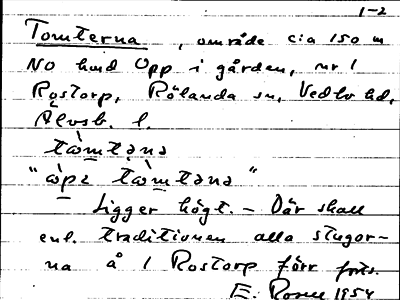 1-2
Tomterna, område c:a 150 m
NO huvudb. Opp i gården, nr 1
Rostorp, Rölanda sn, Vedbo hd,
Älvsb. l.
tòmtəna
"òpi tòmtəna"
Ligger högt. - Där skall
enl. traditionen alla stugor-
na å 1 Rostorp förr fots.
E. Rosell 1954